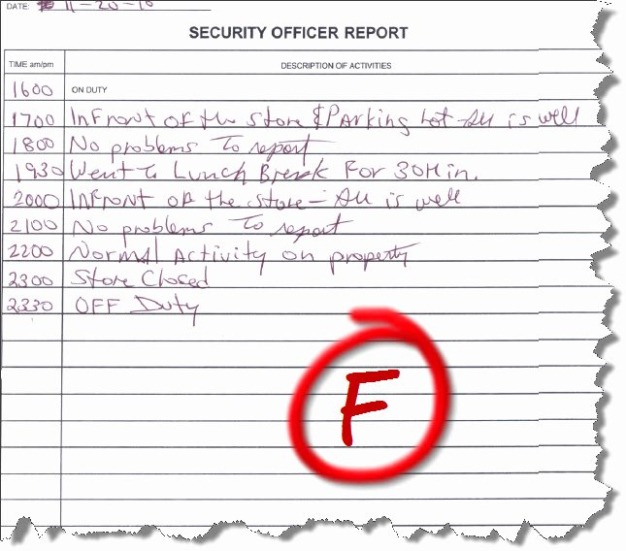 DATE: 11-20-10
SECURITY OFFICER REPORT
TIME am/pm DESCRIPTION OF ACTIVITIES
1600 ON DUTY
1700 InFront of the store & Parking Lot - All is well
1800 No problems To report
1930 Went To Lunch Break For 30Min.
2000 InFront of the store - All is well
2100 No problems To report
2200 Normal Activity on property
2300 Store Closed
2330 OFF Duty
F